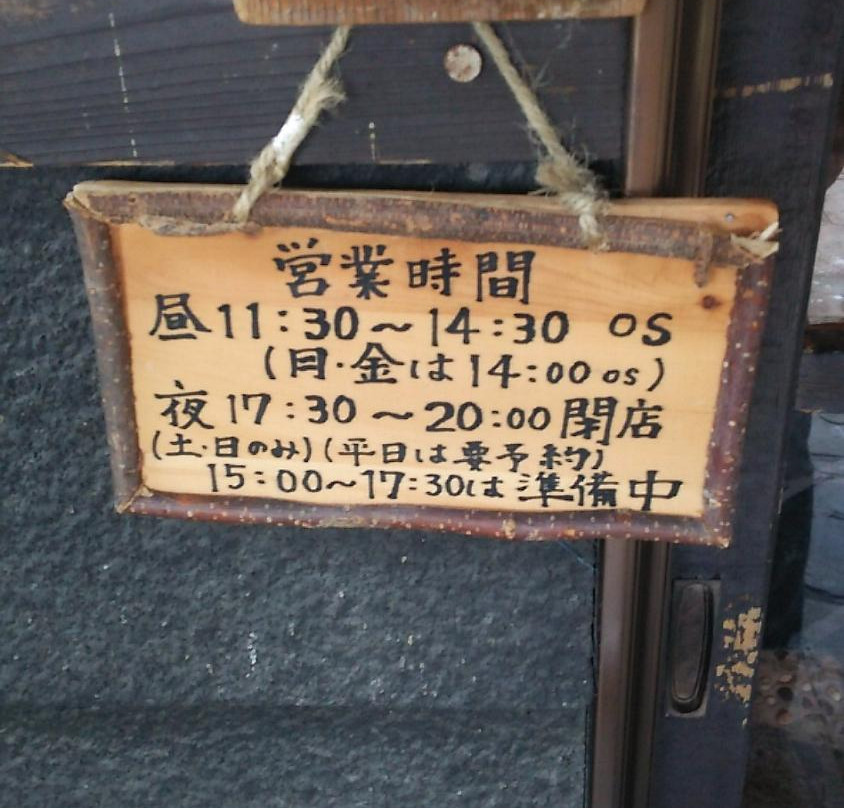 営業時間
昼11:30～14:30 OS
(月・金は14:00 OS)
夜17:30～20:00閉店
(土・日のみ)(平日は要予約)
15:00～17:30は準備中